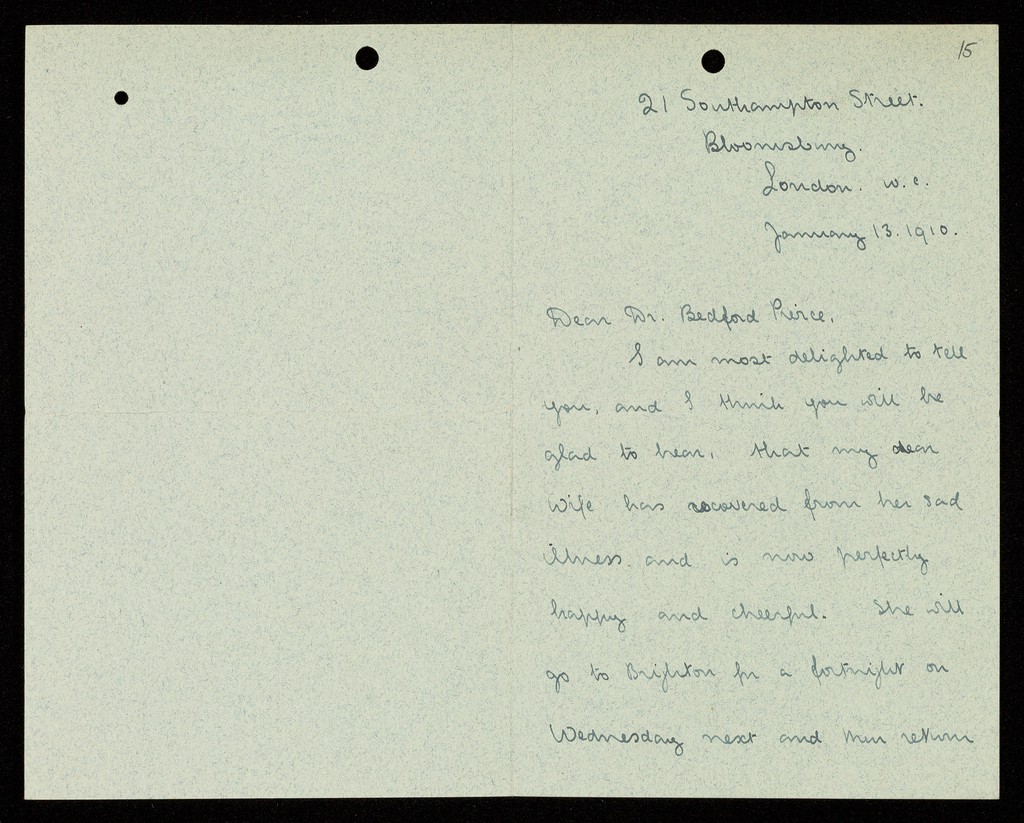 15
21 Southampton Street.
Bloomsbury.
London. W.C.
January 13. 1910.
Dear Dr. Bedford Pierce,
I am most delighted to tell
you, and I think you will be
glad to hear, that my dear
wife has recovered from her sad
illness and is now perfectly
happy and cheerful. She will
go to Brighton for a fortnight on
Wednesday next and then return